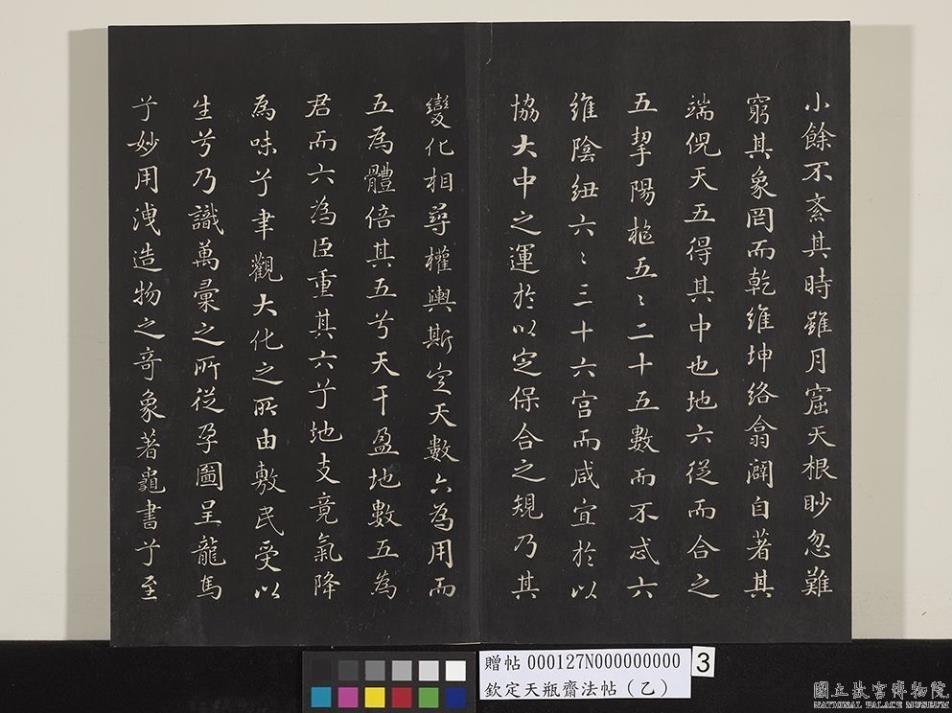 小餘不紊其時雖月窟天根眇忽難
窮其象罔而乾維坤絡翕闢自著其
端倪天五得其中也地六從而合之
五挈陽樞五〻二十五數而不忒六
維陰紐六〻三十六宮而咸宜於以
協大中之運於以定保合之規乃其
變化相尋權輿斯定天數六為用而
五為體倍其五兮天干盈地數五為
君而六為臣重其六兮地支竟氣降
為味兮聿觀大化之所由敷民受以
生兮乃識萬彙之所從孕圖呈龍馬
兮妙用洩造物之奇象著龜書兮至
贈帖 000127N000000000
欽定天瓶齋法帖（乙）
3
國立故宮博物院
NATIONAL PALACE MUSEUM